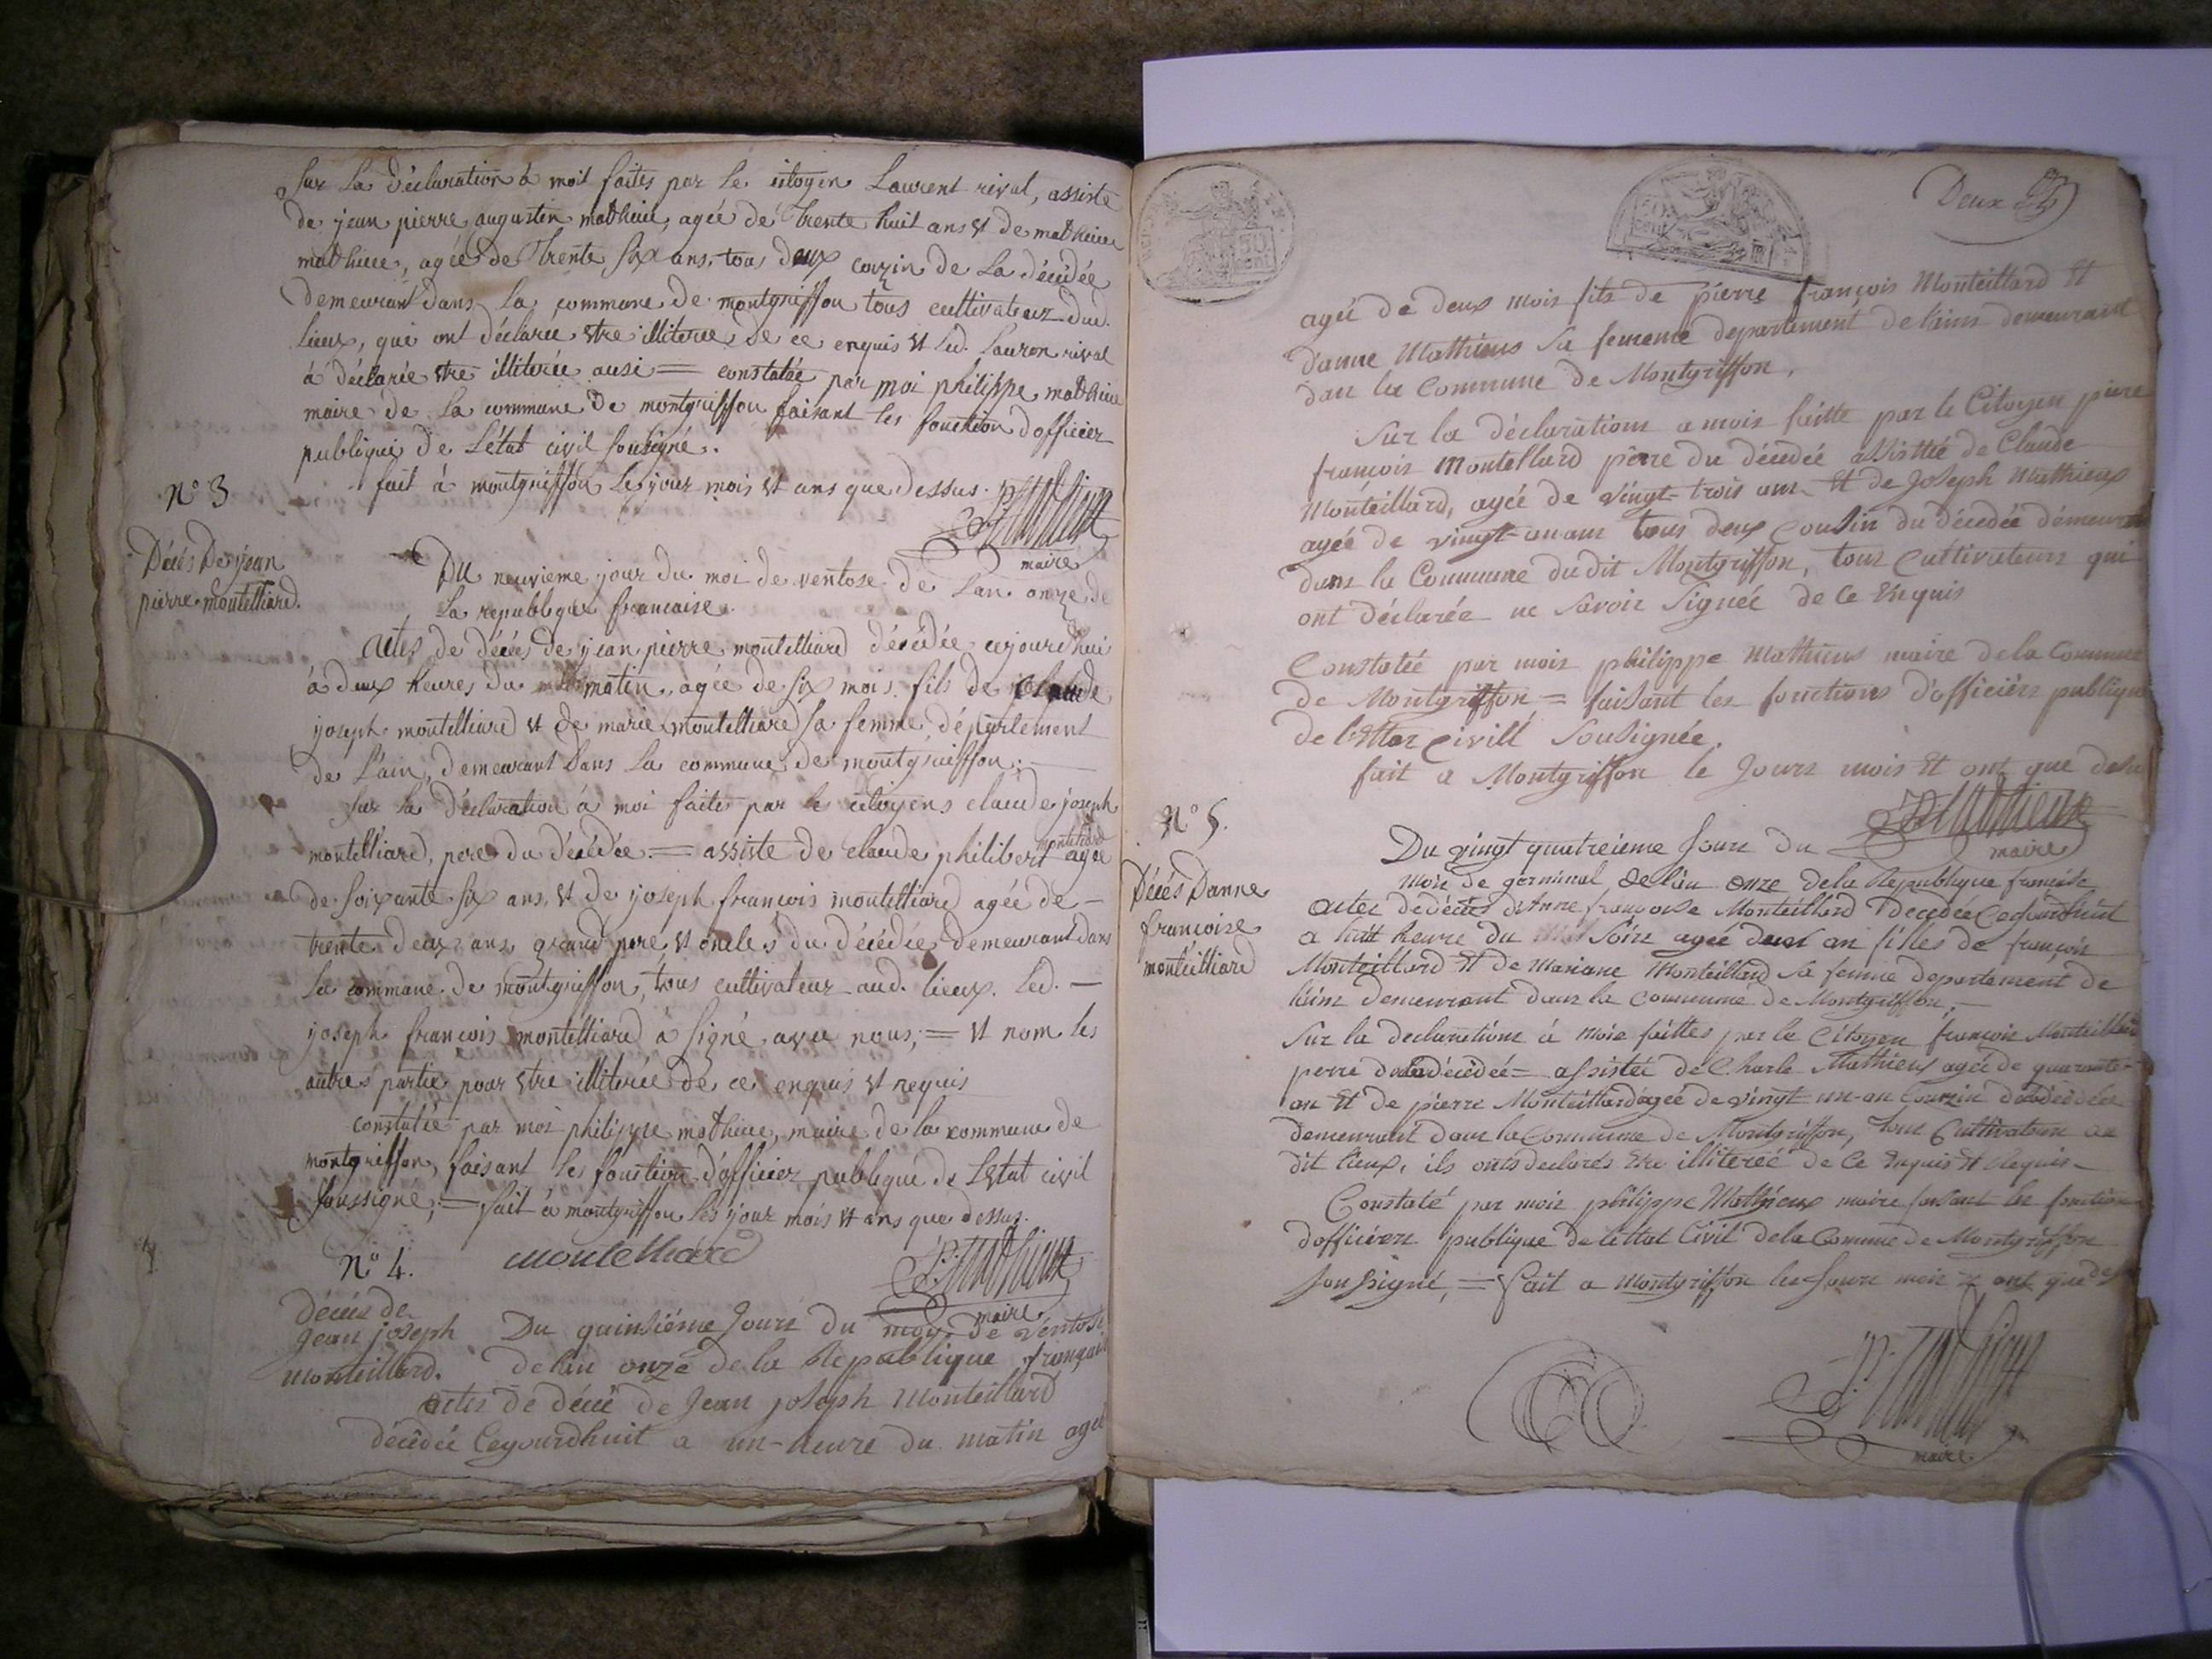 Sur La déclaration à moit faites par le citoyen Laurent rival, assiste
de jean pierre augustin mathieu, agée de trente huit ans et de mathieu
mathieu, agée de trente six ans, tous deux couzin de La décédée
demeurant dans La commune de montgriffon tous cultivateur dud.
lieux, que ont déclarée etre illiterée de ce enquis et led. Lauron rival
à déclarée etre illiterée ausi = constatée par moi philippe mathieu
maire de La commune de montgriffon faisant les fonction dofficier
publique de L'état civil sousigné.
fait à montgriffon Le jour mois et ans que dessus.
P. Mathieux
maire
N° 3
Décés De jean
pierre montelliard.
Du neuvieme jour du moi de ventose de Lan onze de
La republique francaise.
Actes de décés de jean pierre montelliard décédée cejourdhui
à deux heures du matin, agée de six mois. fils de claude
joseph montelliard et de marie montelliard sa femme, département
de L'ain, demeurant dans La commune de montgriffon.
Sur la déclaration à moi faite par le citoyens claude joseph
montelliard, pere du décédée. = assiste de claude philibert montelliard agée
de soixante six ans, et de joseph francois montelliard agée de -
trente deux ans grand pere et oncles du décédée demeurant dans
La commune de montgriffon, tous cultivateur aud. lieux. Led. -
joseph francois montelliard à signé avec nous; = et nom les
autres partie pour etre illiterée de ce enquis et requis
constatée par moi philippe mathieu, maire de la commune de
montgriffon, faisant les fonction d'officier publique de L'etat civil
soussigné; = fait à montgriffon Les jour mois et ans que dessus.
montelliard
P. Mathieux
maire
N° 4.
décés de
jean joseph
monteillard.
Du quinsiéme Jours du moy de ventose
de lan onze de la Republique français
actes de décé de Jean joseph Monteillard
décédée Cejourdhuit a un-heure du matin agée
Deux
agée de deux mois fils de pierre françois Monteillard et
d'anne Mathieus sa fememe departement de l'ains demeurant
dan les Commune de Montgriffon,
Sur la déclarations a mois faitte par le Citoyen piere
françois Montellard père du décedée assisttée de Claude
Monteillard, agée de vingt-trois ans et de Joseph Mathieux
agée de vingt-un ans tous deux Cousin du décedée démeurant
dans la Commune du dit Montgriffon, tous Cultivateurs qui
ont déclarée ne savoir signée de Ce enquis
Constatée par mois philippe Mathieus maire de la Commune
de Montgriffon = faisant les fonctions d'officiérs publique
de Civill sousignée.
fait a Montgriffon le Jours mois et ans que
P. Mathieux
maire
N° 5.
Décés Danne
francoise
monteilliard
Du vingt quatreieme Jours du
mois de germinal de lan onze dela Republique françoise
actes dedécés d'Anne françoise Monteillard Decedée Cejourdhuit
a huit heure du soire agée deux an filles de françois
Monteillard et de Mariane Monteillard sa femme departement de
lains demeurant dans la Commune de Montgriffon. -
Sur la declarations à mois faittes par le Citoyen françois Monteillard
perre décédeé = assistée de Charle Mathieux agée de quarante-
an et de pierre Monteillard agée de vingt un-an
demeurant dans la Commune de Montgriffon, tous Cultivateurs au
dit lieux, ils onts declarés etre illitereé de Ce enquis et Requis -
Constaté par mois philippe Mathieux maire faisant les fonction
dofficiers publique de l'ettat Civil dela Comune de Montgriffon
soussigné, = fait a Montgriffon les Jours mois et ans que
P. Mathieux
maire